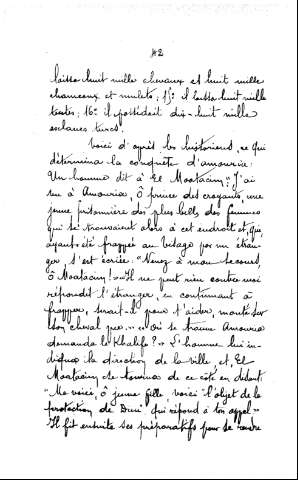 42
laissa huit mille chevaux et huit mille
chameaux et mulets, 15° il laissa huit mille
tentes; 16° il possédait dix-huit mille
esclaves turcs.
Voici d'après les historiens, ce qui
détermina la conquête d'amouria:
Un homme dit à El Moatacim: "J'ai
vu à Amouria, ô prince des croyants, une
jeune prisonnière des plus belles des femmes
qui se trouvaient alors à cet endroit et, qui,
ayant été frappée au visage par un étran-
ger s'est écriée: "Venez à mon secours,
ô Moatacim!" "Il ne peut rien contre moi
répondit l'étranger, en continuant à
frapper, serait-il pour t'aider, monté sur
son cheval pie." "Où se trouve Amouria
demanda le Khalife?" L'homme lui in-
diqua la direction de la ville et, El
Moatacim se tourna de ce côté en disant:
"Me voici, ô jeune fille voici l'objet de la
protection de Dieu qui répond à ton appel"
Il fit ensuite ses préparatifs pour se rendre